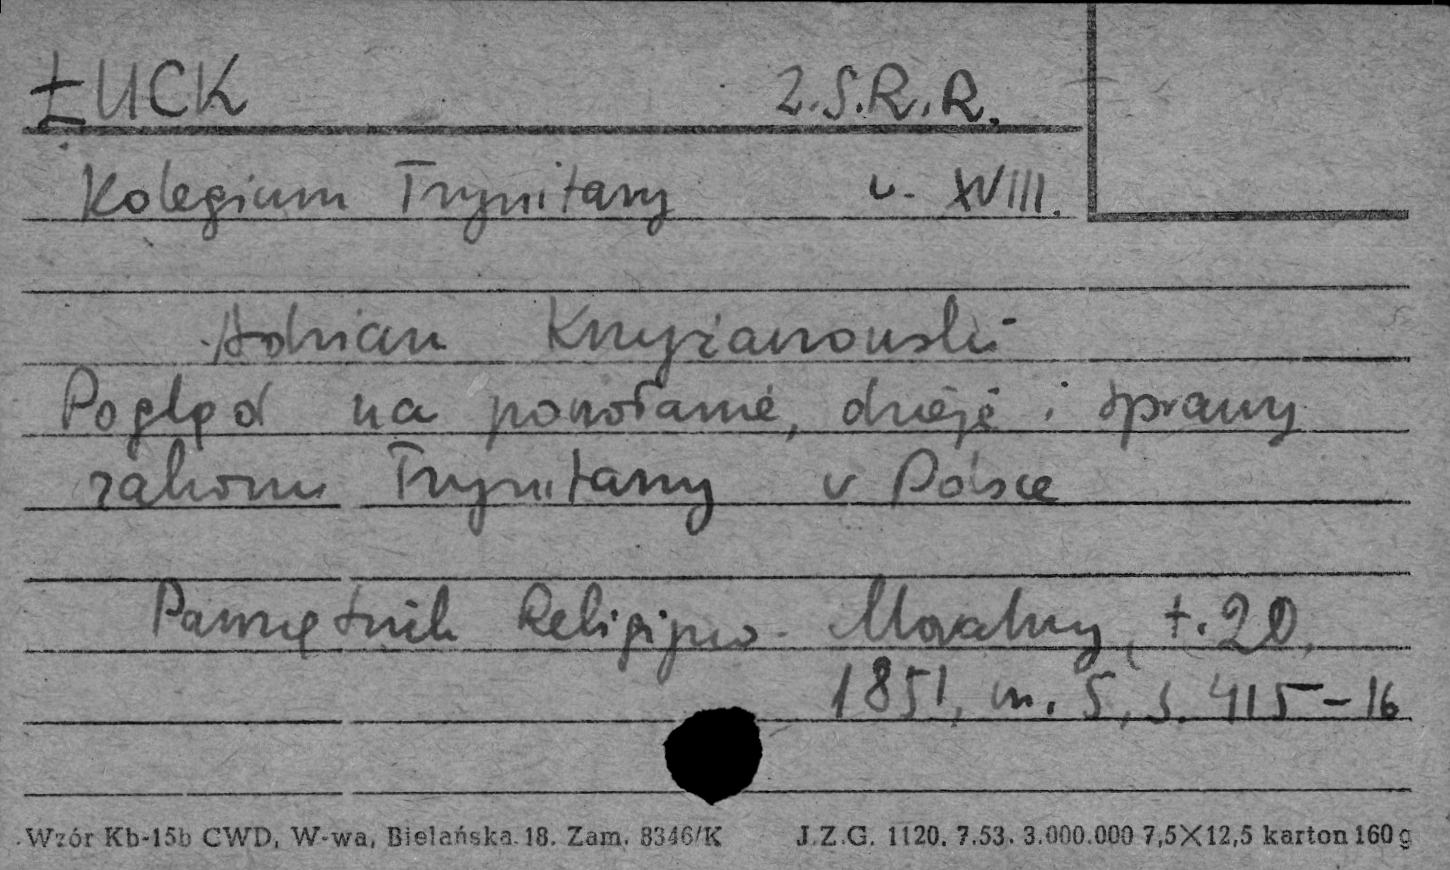 ŁUCK Z.S.R.R.
Kolegium Trynitarzy w. XVIII.
Adrian Krzyżanowski
Pogląd na powołanie, dzieje i sprawy
zakonu Trynitarzy w Polsce
Pamiętnik Religijno-Moralny, t. 20,
1851, nr. 5, s. 415-16
Wzór Kb-15b CWD, W-wa, Bielańska 18. Zam. 8346/K J.Z.G. 1120. 7.53. 3.000.000 7,5×12,5 karton 160 g